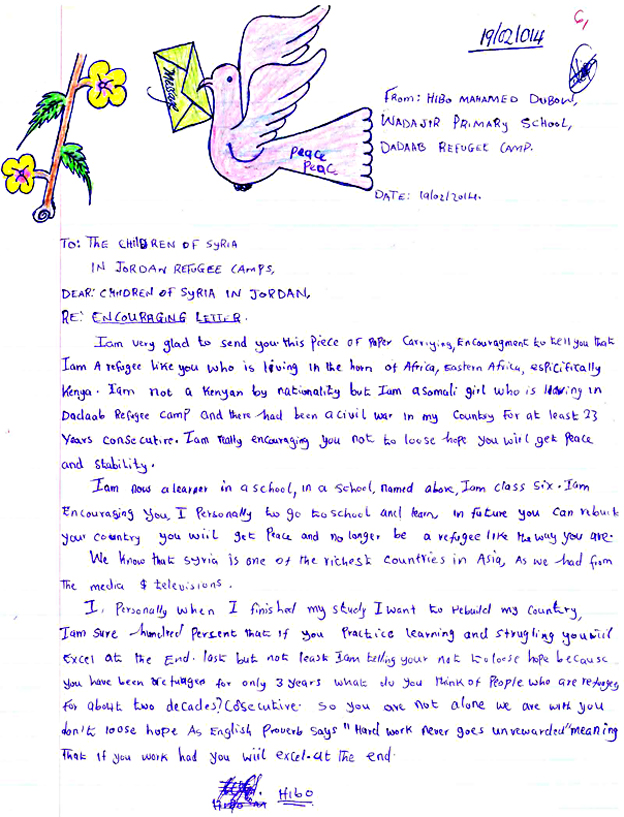 19/02/014
6,
Message
Peace
Peace
From: HIBO MAHAMED DUBOW,
WADAJIR PRIMARY SCHOOL,
DADAAB REFUGEE CAMP.
DATE: 19/02/2014.
TO: THE CHILDREN OF SYRIA
IN JORDAN REFUGEE CAMPS,
DEAR: CHILDREN OF SYRIA IN JORDAN,
RE: ENCOURAGING LETTER.
Iam very glad to send you this Piece of Paper Carriying, Encouragment to tell you that
Iam A refugee like you who is living in the horn of Africa, Eastern Africa, espicifically
Kenya. Iam not a Kenyan by nationality but Iam a Somali girl who is leaving in
Dadaab Refugee Camp and there had been a civil war in my Country for at least 23
Years consecutive. Iam really encouraging you not to loose hope you will get Peace
and stability.
Iam now a learner in a school, in a school, named above, Iam class six. Iam
Encouraging You, I Personally to go to school and learn, in future you can rebuil
your country you wiil get Peace and no longer be a refugee like the way you are.
We know that Syria is one of the richest countries in Asia, As we had from
The media & televisions.
I, Personally when I finished my study I want to rebuild my Country,
Iam Sure hundred Percent that if you Practice learning and strugling you wiil
Excel at the End. last but not least Iam telling your not to loose hope because
you have been refugees for only 3 years what do you think of People who are refugees
for about two decades? Cosecutive. so you are not alone we are with you
don't loose hope As English Proverb Says "Hard work never goes unrewarded" meaning
That if you work had you wiil excel at the end.
HIBO